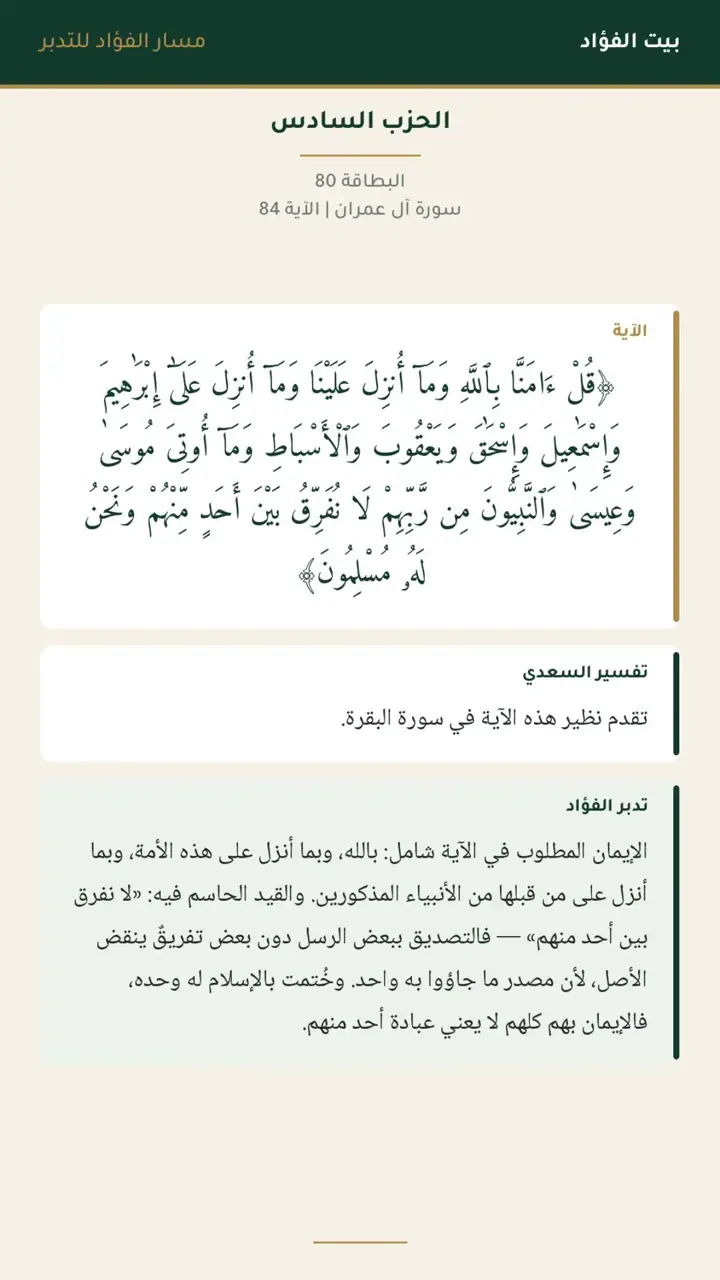 بيت الفؤاد
مسار الفؤاد للتدبر
الحزب السادس
البطاقة 80
سورة آل عمران | الآية 84
الآية
﴿قُلْ ءَامَنَّا بِٱللَّهِ وَمَآ أُنزِلَ عَلَيْنَا وَمَآ أُنزِلَ عَلَىٰٓ إِبْرَٰهِيمَ
وَإِسْمَٰعِيلَ وَإِسْحَٰقَ وَيَعْقُوبَ وَٱلْأَسْبَاطِ وَمَآ أُوتِىَ مُوسَىٰ
وَعِيسَىٰ وَٱلنَّبِيُّونَ مِن رَّبِّهِمْ لَا نُفَرِّقُ بَيْنَ أَحَدٍ مِّنْهُمْ وَنَحْنُ
لَهُۥ مُسْلِمُونَ﴾
تفسير السعدي
تقدم نظير هذه الآية في سورة البقرة.
تدبر الفؤاد
الإيمان المطلوب في الآية شامل: بالله، وبما أنزل على هذه الأمة، وبما
أنزل على من قبلها من الأنبياء المذكورين. والقيد الحاسم فيه: «لا نفرق
بين أحد منهم» — فالتصديق ببعض الرسل دون بعض تفريقٌ ينقض
الأصل، لأن مصدر ما جاؤوا به واحد. وخُتمت بالإسلام له وحده،
فالإيمان بهم كلهم لا يعني عبادة أحد منهم.